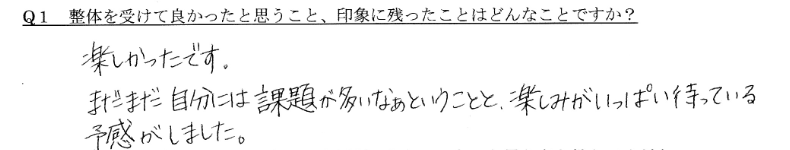 Q1 整体を受けて良かったと思うこと、印象に残ったことはどんなことですか？
楽しかったです。
まだまだ自分には課題が多いなぁということと、楽しみがいっぱい待っている
予感がしました。